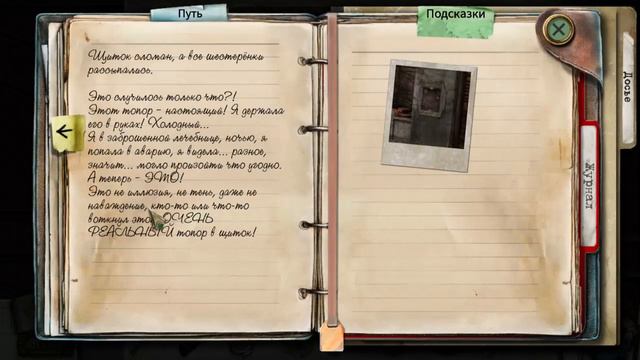 Путь
Подсказки
Щиток сломан, а все шестерёнки
рассыпались.
Это случилось только что?!
Этот топор – настоящий! Я держала
его в руках! Холодный...
Я в заброшенной лечебнице, ночью, я
попала в аварию, я видела... разное,
значит... могло произойти что угодно.
А теперь – ЭТО!
Это не иллюзия, не тень, даже не
наваждение, кто-то или что-то
воткнул этот ОЧЕНЬ
РЕАЛЬНЫЙ топор в щиток!
Досье
Журнал